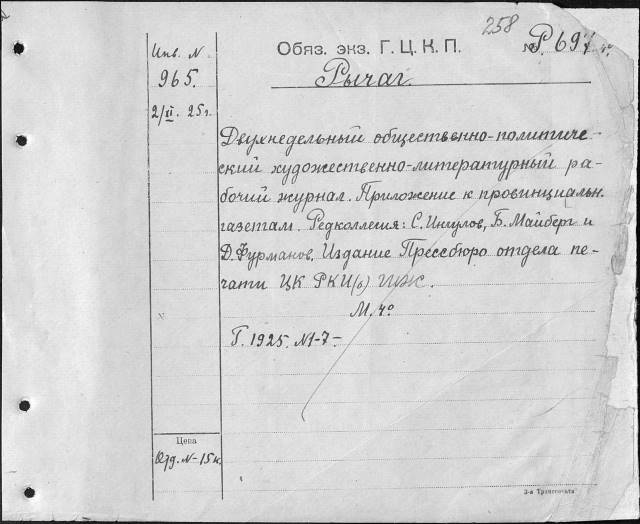 258
Инв. N
965.
2/XI. 25 г.
Обяз. экз. Г. Ц. К. П.
№ Р. 697 4°
Рычаг.
Двухнедельный общественно-политиче-
ский художественно-литературный ра-
бочий журнал. Приложение к провинциальн.
газетам. Редколлегия: С. Ингулов, Б. Майберг и
Д. Фурманов. Издание Прессбюро отдела пе-
чати ЦК РКП(б)
М. 4°
Г. 1925. N 1-7-
Цена
Отд. N-15 к.
3-я Транспечать